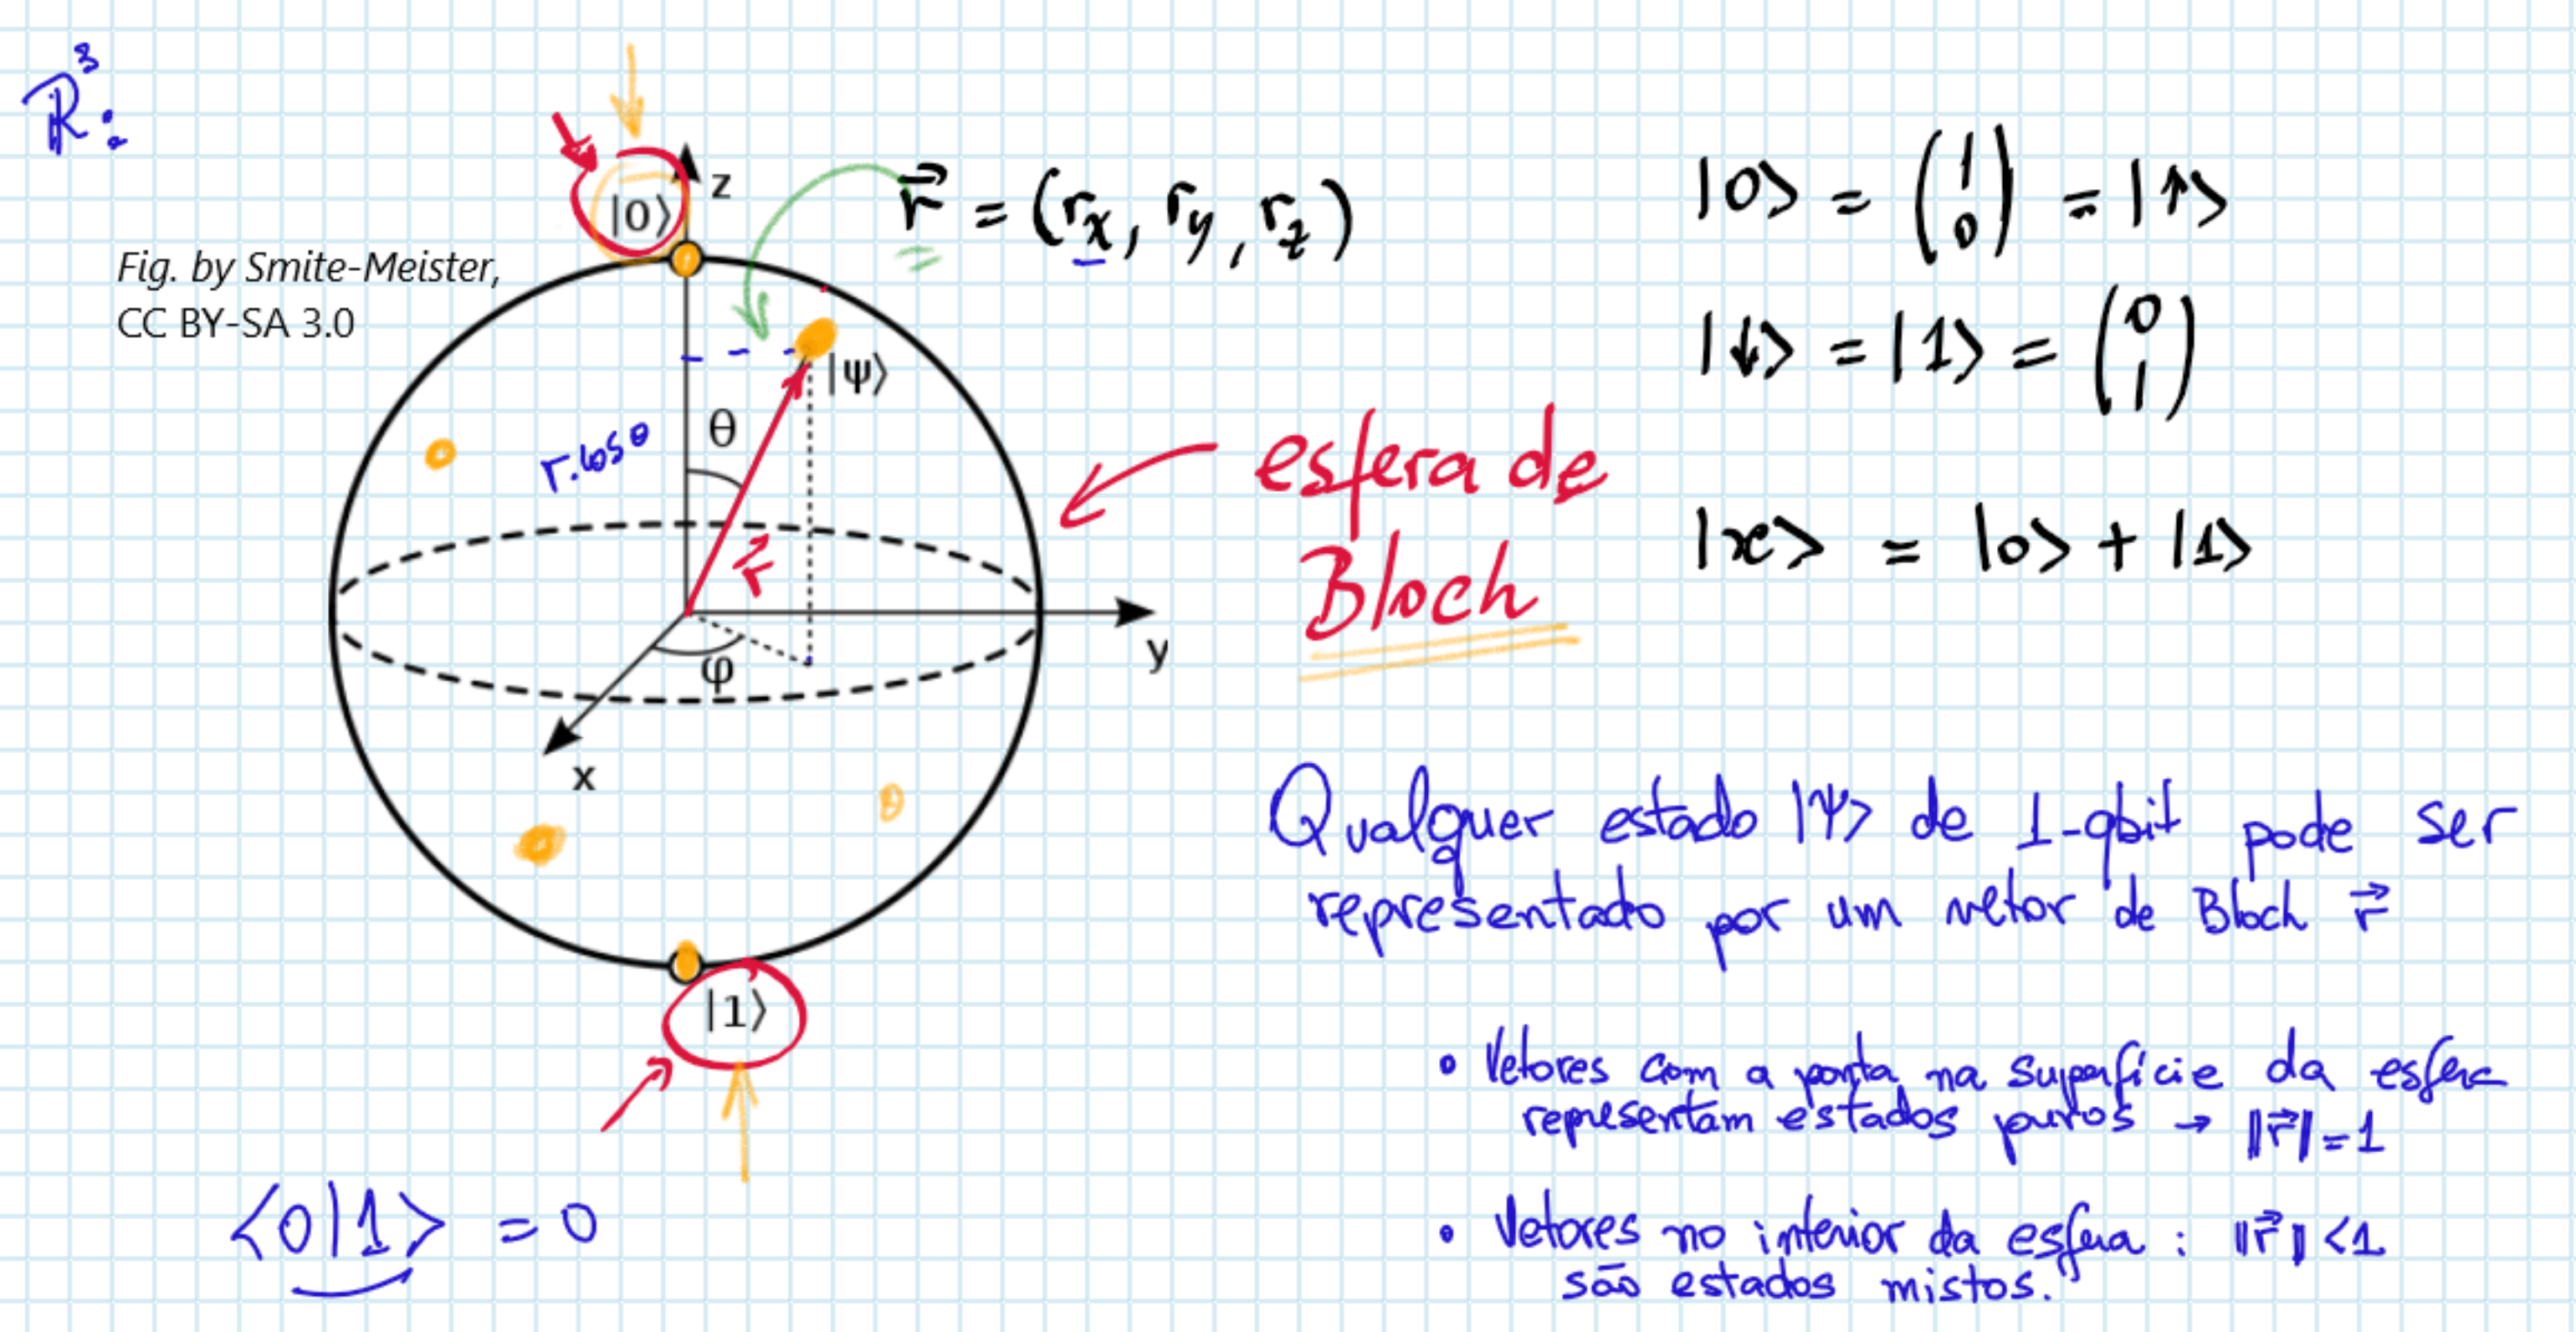 ℝ³:
|0⟩
z
r⃗ = (rx, ry, rz)
Fig. by Smite-Meister,
CC BY-SA 3.0
|ψ⟩
θ
r.cosθ
r⃗
φ
y
x
|1⟩
⟨0|1⟩ = 0
esfera de
Bloch
|0⟩ = (1 0) = |↑⟩
|↓⟩ = |1⟩ = (0 1)
|x⟩ = |0⟩ + |1⟩
Qualquer estado |Ψ⟩ de 1-qbit pode ser
representado por um vetor de Bloch r⃗
• Vetores com a ponta na superfície da esfera
representam estados puros → ‖r⃗‖ = 1
• Vetores no interior da esfera : ‖r⃗‖ < 1
são estados mistos.